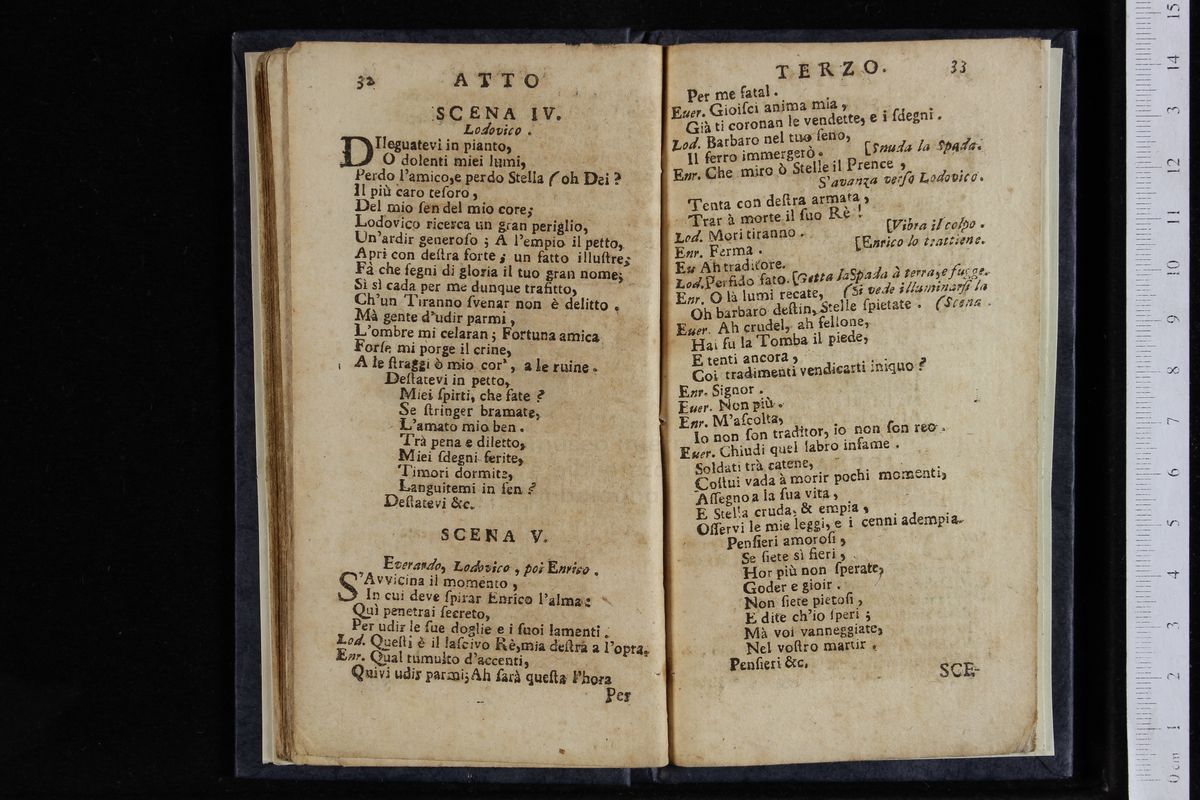 32 ATTO
SCENA IV.
Lodovico.
DIleguatevi in pianto,
O dolenti miei lumi,
Perdo l'amico,e perdo Stella (oh Dei?
Il più caro teſoro,
Del mio ſen del mio core;
Lodovico ricerca un gran periglio,
Un'ardir generoſo ; A l'empio il petto,
Apri con deſtra forte; un fatto illuſtre;
Fà che ſegni di gloria il tuo gran nome;
Sì sì cada per me dunque trafitto,
Ch'un Tiranno ſvenar non è delitto.
Mà gente d'udir parmi,
L'ombre mi celaran; Fortuna amica
Forſe mi porge il crine,
A le ſtraggi ò mio cor', a le ruine.
Deſtatevi in petto,
Miei ſpirti, che fate?
Se ſtringer bramate,
L'amato mio ben.
Trà pena e diletto,
Miei ſdegni ferite,
Timori dormite,
Languitemi in ſen?
Deſtatevi &c.
SCENA V.
Everardo, Lodovico, poi Enrico.
S'Avvicina il momento,
In cui deve ſpirar Enrico l'alma:
Quì penetrai ſecreto,
Per udir le ſue doglie e i ſuoi lamenti.
Lod. Queſti è il laſcivo Rè,mia deſtra a l'opra.
Enr. Qual tumulto d'accenti,
Quivi udir parmi;Ah ſarà queſta l'hora
Per
TERZO. 33
Per me fatal.
Euer. Gioiſci anima mia,
Già ti coronan le vendette, e i ſdegni.
Lod. Barbaro nel tuo ſeno,
Il ferro immergerò. [Snuda la Spada.
Enr. Che miro ò Stelle il Prence,
S'avanza verſo Lodovico.
Tenta con deſtra armata,
Trar à morte il ſuo Rè!
Lod. Mori tiranno. [Vibra il colpo.
Enr. Ferma. [Enrico lo trattiene.
Eu Ah traditore.
Lod.Perfido fato. [Getta laSpada à terra,e fugge.
Enr. O là lumi recate, (Si vede illuminarſi la
Oh barbaro deſtin, Stelle ſpietate. (Scena.
Euer. Ah crudel, ah fellone,
Hai ſu la Tomba il piede,
E tenti ancora,
Coi tradimenti vendicarti iniquo?
Enr. Signor.
Euer. Non più.
Enr. M'aſcolta,
Io non ſon traditor, io non ſon reo.
Euer. Chiudi quel labro infame.
Soldati trà catene,
Coſtui vada à morir pochi momenti,
Aſſegno a la ſua vita,
E Stella cruda, & empia,
Oſſervi le mie leggi, e i cenni adempia.
Penſieri amoroſi,
Se ſiete sì fieri,
Hor più non ſperate,
Goder e gioir.
Non ſiete pietoſi,
E dite ch'io ſperi;
Mà voi vanneggiate,
Nel voſtro martir.
Penſieri &c.
SCE-
0 cm 1 2 3 4 5 6 7 8 9 10 11 12 13 14 15